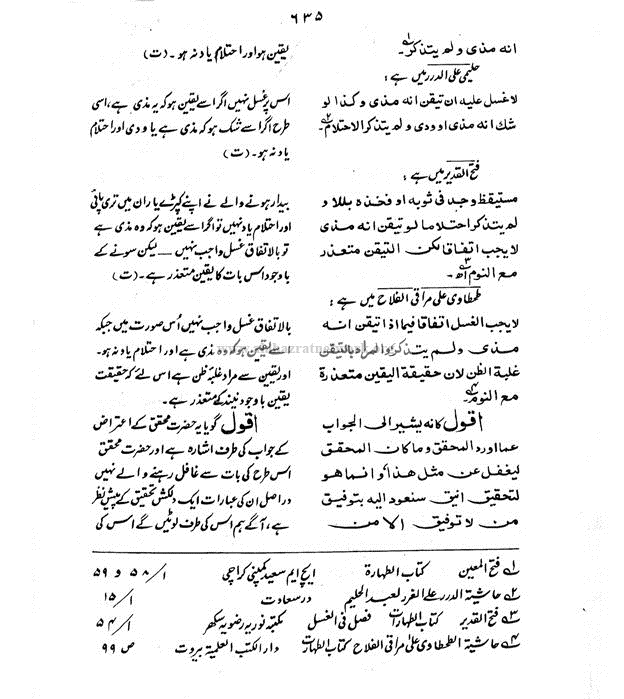 ٦٣٥
انه مذی و لم یتذکر۔۱
حلیمی علی الدرر میں ہے :
لا غسل علیه ان تیقن انه مذی و کذا لو
شك انه مذی او ودی و لم یتذکر الاحتلام۔۲
فتح القدیر میں ہے :
مستیقظ وجد فی ثوبه او فخذه بللا و
لم یتذکر احتلاما لو تیقن انه مذی
لا یجب اتفاقا لکن التیقن متعذر
مع النوم اھ۳
طحطاوی علی مراقی الفلاح میں ہے :
لا یجب الغسل اتفاقا فیما اذا تیقن انه
مذی ولم یتذکر والمراد بالتیقن
غلبة الظن لان حقیقة الیقین متعذرة
مع النوم۔۴
اقول کانه یشیر الی الجواب
عما اورد المحقق وما کان المحقق
لیغفل عن مثل هذا و انما هو
لتحقیق انیق سنعود الیه بتوفیق
من لا توفیق الا من
یقین ہو اور احتلام یاد نہ ہو۔ (ت)
اس پر غسل نہیں اگر اسے یقین ہو کہ یہ مذی ہے ، اسی
طرح اگر اسے شک ہو کہ مذی ہے یا ودی اور احتلام
یاد نہ ہو۔ (ت)
بیدار ہونے والے نے اپنے کپڑے یا ران میں تری پائی
اور احتلام یاد نہیں تو اگر اسے یقین ہو کہ وہ مذی ہے
تو بالاتفاق غسل واجب نہیں ــــ لیکن سونے کے
باوجود اس بات کا یقین متعذر ہے۔ (ت)
بالاتفاق غسل واجب نہیں اُس صورت میں جبکہ
اسے یقین ہو کہ وہ مذی ہے اور احتلام یاد نہ ہو۔
اور یقین سے مراد غلبۂ ظن ہے اس لئے کہ حقیقت
یقین باوجود نیند کے متعذر ہے۔
اقول گویا یہ حضرت محقق کے اعتراض
کے جواب کی طرف اشارہ ہے اور حضرت محقق
اس طرح کی بات سے غافل رہنے والے نہیں
دراصل ان کی عبارات ایک دلکش تحقیق کے پیش نظر
ہے ، آگے ہم اس کی طرف لوٹیں گے اس کی
۱ فتح المعین کتاب الطہارة ایچ ایم سعید کمپنی کراچی ۱/ ۵۸ و ۵۹
۲ حاشیة الدرر علی الغرر لعبد الحلیم در سعادت ۱/ ۱۵
۳ فتح القدیر کتاب الطہارات فصل فی الغسل مکتبہ نوریہ رضویہ سکھر ۱/ ۵۴
۴ حاشیة الطحطاوی علی مراقی الفلاح کتاب الطہارت دار الکتب العلمیة بیروت ص ۹۹